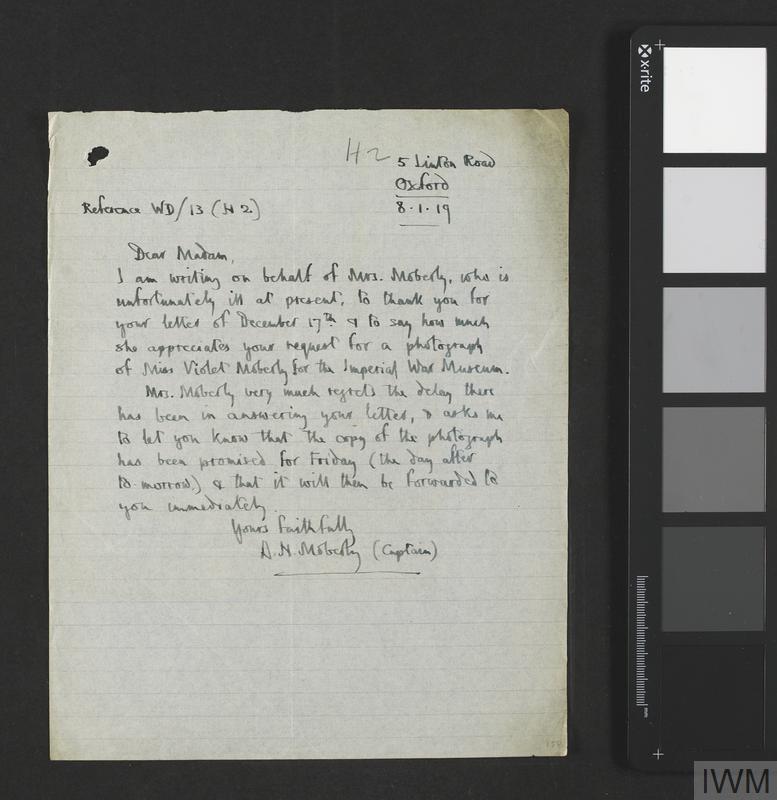 H2
5 Linton Road
Oxford
Reference WD/13 (H 2.)
8.1.19
Dear Madam,
I am writing on behalf of Mrs. Moberly, who is
unfortunately ill at present, to thank you for
your letter of December 17th & to say how much
she appreciates your request for a photograph
of Miss Violet Moberly for the Imperial War Museum.
Mrs. Moberly very much regrets the delay there
has been in answering your letter, & asks me
to let you know that the copy of the photograph
has been promised for Friday (the day after
to-morrow) & that it will then be forwarded to
you immediately.
Yours faithfully
A. H. Moberly (Captain)
x-rite
mm
IWM